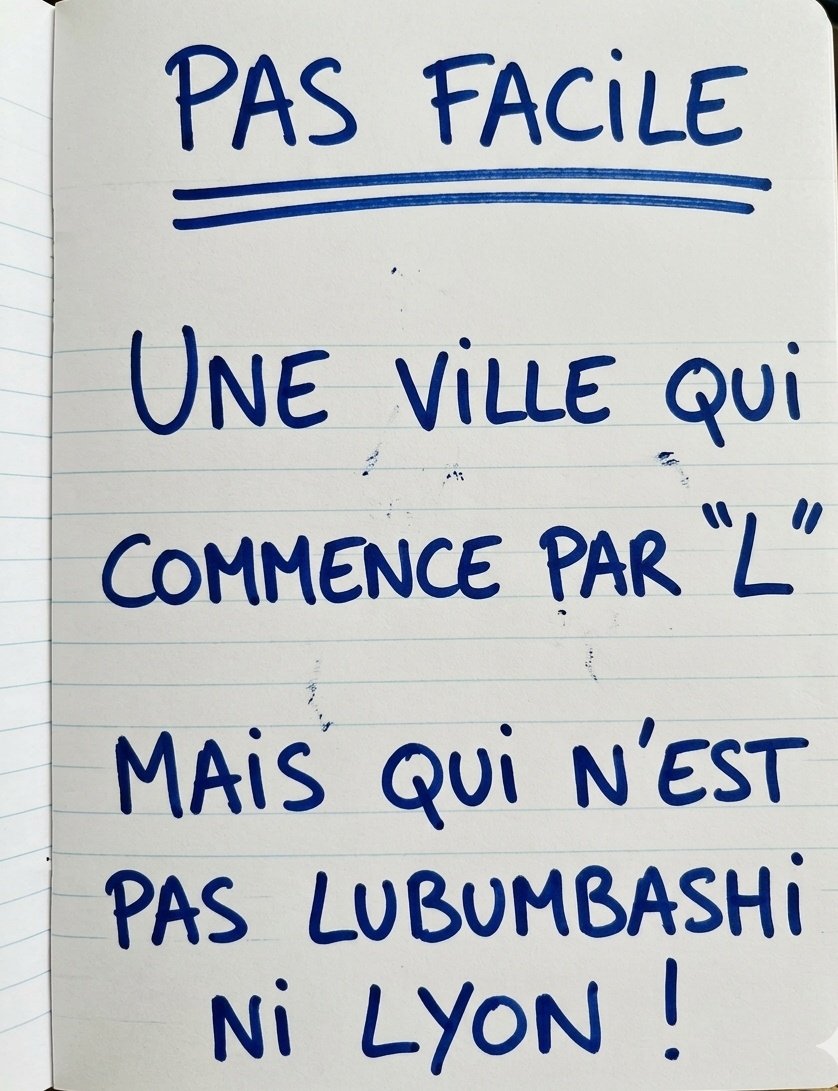 PAS FACILE
UNE VILLE QUI
COMMENCE PAR "L"
MAIS QUI N'EST
PAS LUBUMBASHI
NI LYON !